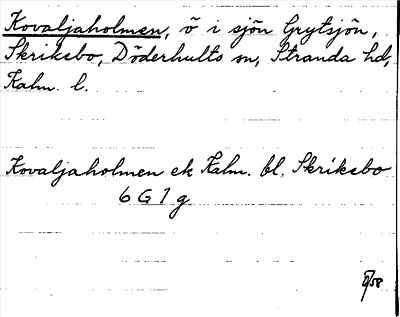 Kovaljaholmen, ö i sjön Grytsjön,
Skriksbo, Döderhults sn, Stranda hd,
Kalm. l.
Kovaljaholmen ek Kalm. bl. Skriksbo
6 G 1 g